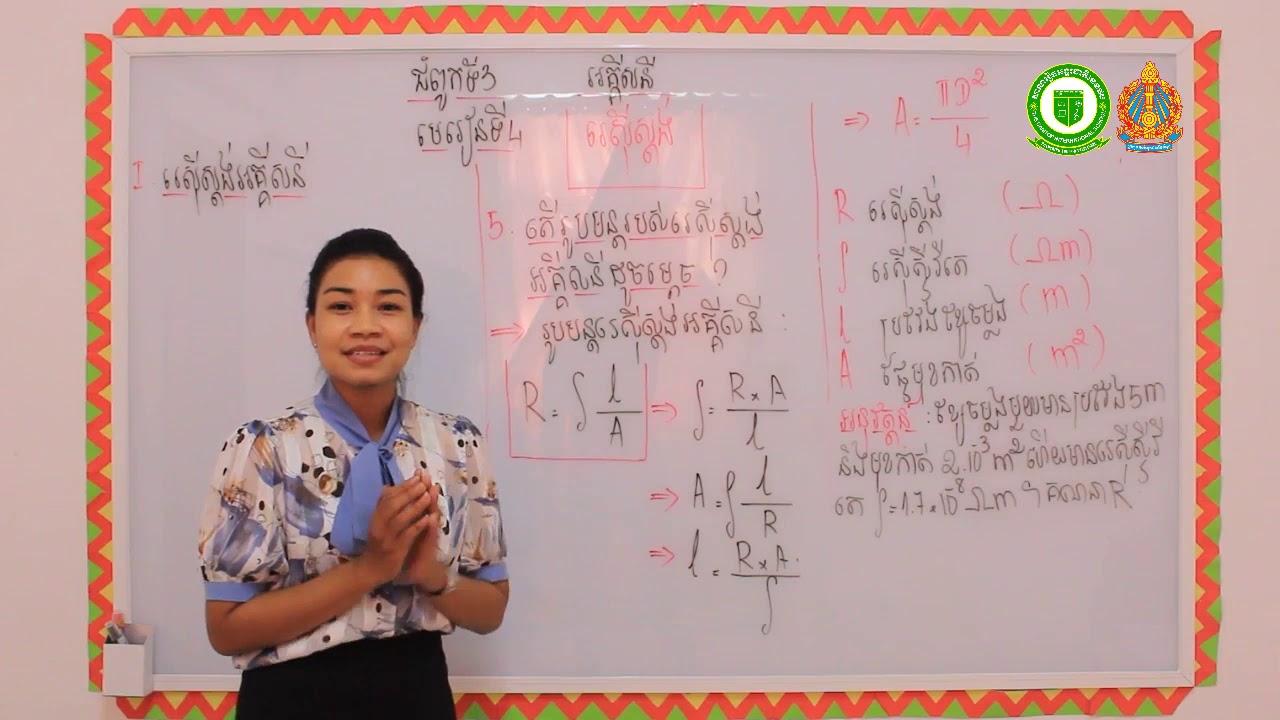 ជំពូកទី3 អគ្គីសនី
មេរៀនទី4 រេស៊ីស្តង់
I. រេស៊ីស្តង់អគ្គីសនី
5. តើរូបមន្តរបស់រេស៊ីស្តង់
អគ្គីសនីដូចម្តេច ?
⇒ រូបមន្តរេស៊ីស្តង់អគ្គីសនី :
R = ∫ l/A ⇒ ∫ = R x A / l
⇒ A = ∫ l/R
⇒ l = R x A / ∫
⇒ A = πD²/4
R រេស៊ីស្តង់ (Ω)
∫ រេស៊ីស្ទីវីតេ (Ωm)
l ប្រវែងខ្សែចម្លង (m)
A ផ្ទៃមុខកាត់ (m²)
អនុវត្តន៍ : ខ្សែចម្លងមួយមានប្រវែង5m
និងមុខកាត់ 2.10³m² ហើយមានរេស៊ីស្ទីវី
តេ ∫=1.7x10 Ωm ។ គណនា R